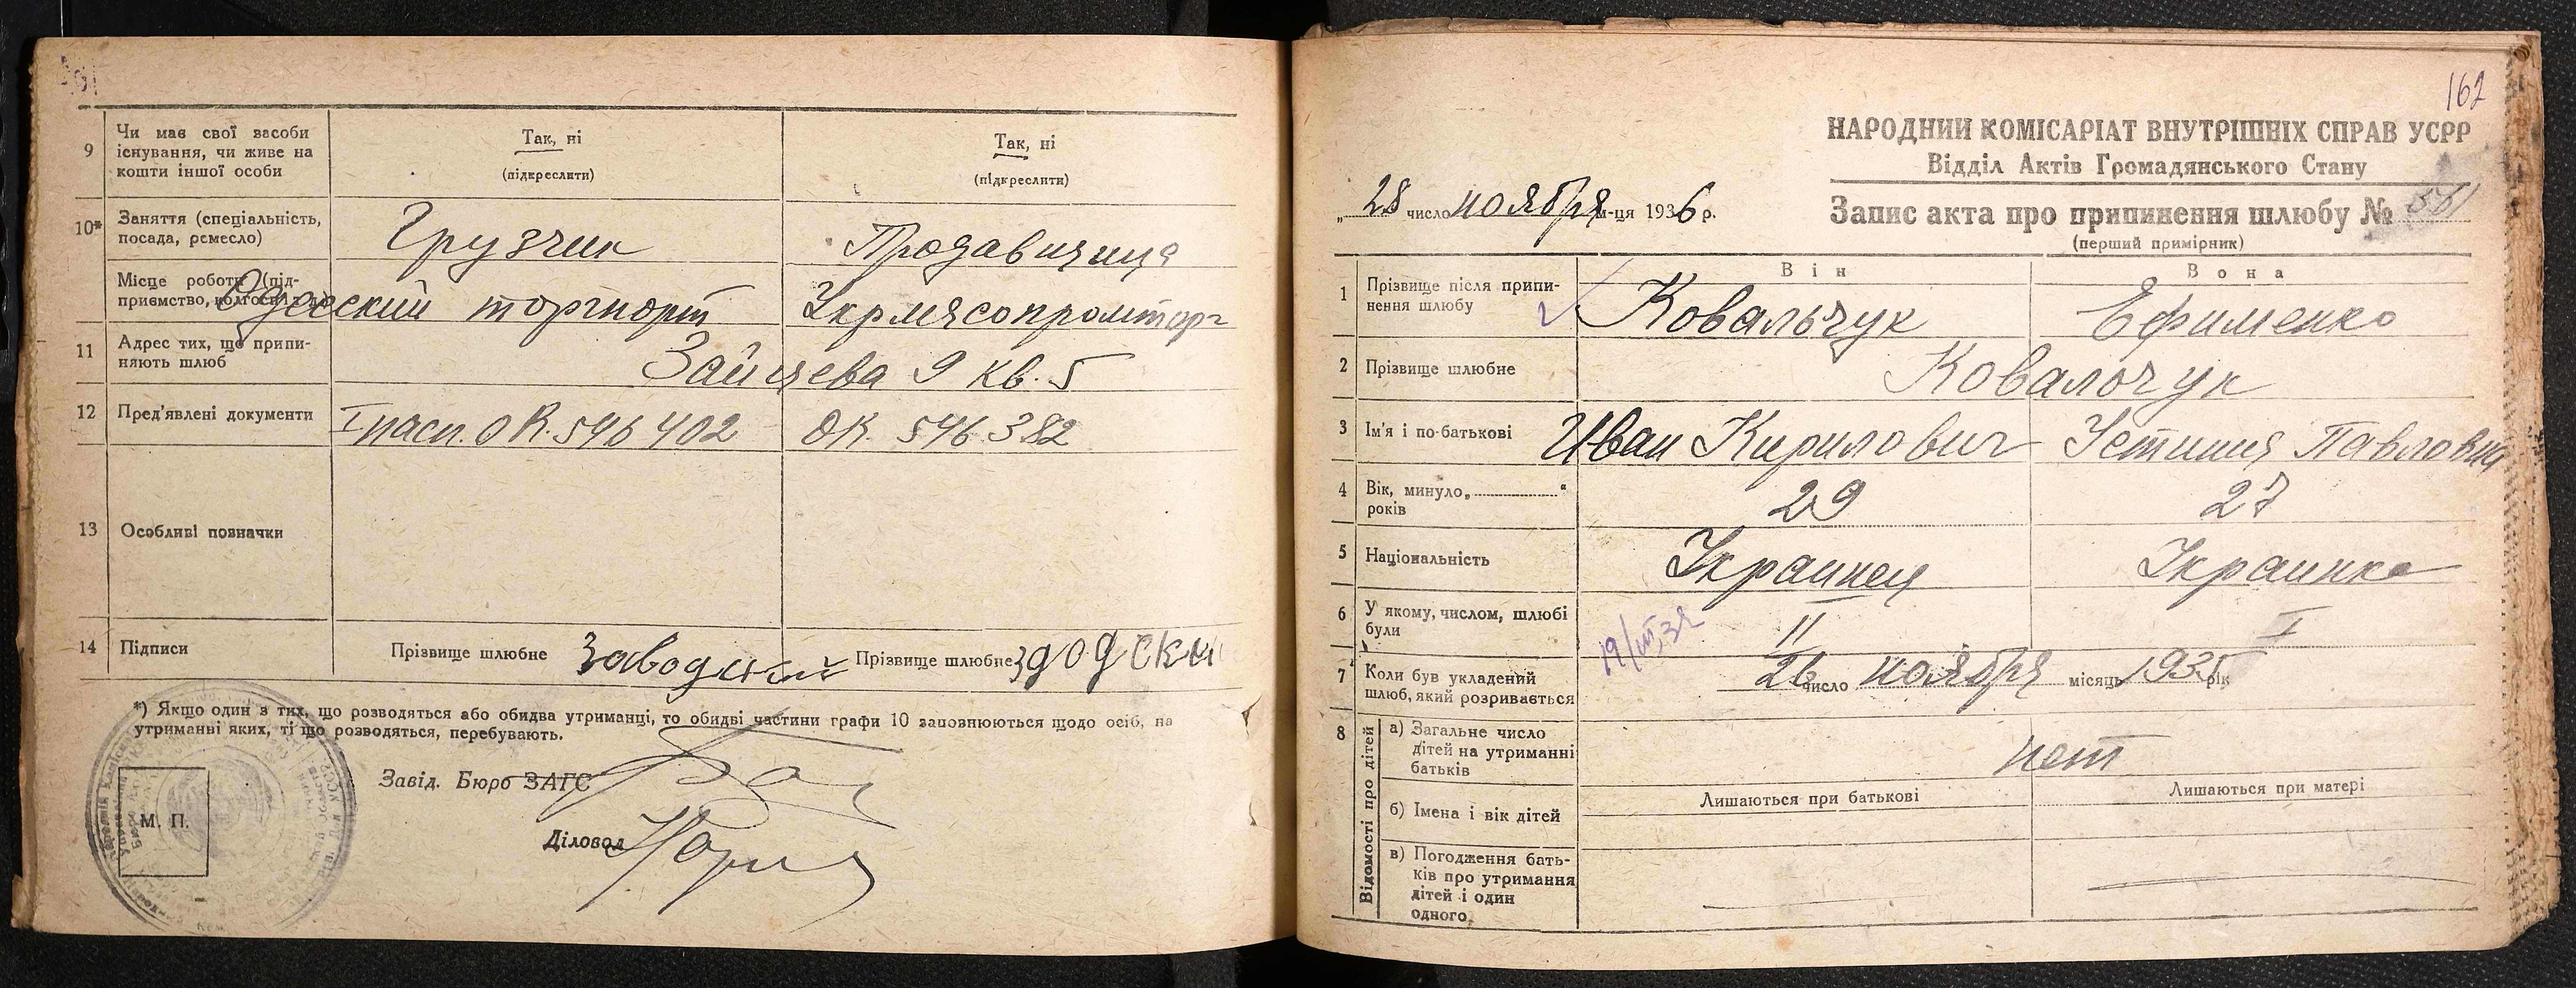 9
Чи має свої засоби
існування, чи живе на
кошти іншої особи
Так, ні
(підкреслити)
Так, ні
(підкреслити)
10*
Заняття (спеціальність,
посада, ремесло)
Грузчик
Продавщица
Місце роботи (під-
приємство,
Одесский торгпорт
Укрмясопромторг
11
Адрес тих, що припи-
няють шлюб
Зайцева 9 кв. 5
12
Пред'явлені документи
I пасп. ОК. 596 402
ОК. 596 382
13
Особливі позначки
14
Підписи
Прізвище шлюбне
Заводский
Прізвище шлюбне
*) Якщо один з тих, що розводяться або обидва утриманці, то обидві частини графи 10 заповнюються щодо осіб, на
утриманні яких, ті що розводяться, перебувають.
Завід. Бюро ЗАГС
Діловод
М. П.
162
НАРОДНИЙ КОМІСАРІАТ ВНУТРІШНІХ СПРАВ УСРР
Відділ Актів Громадянського Стану
„ 28 число ноября м-ця 1936 р.
Запис акта про припинення шлюбу №
(перший примірник)
Він
Вона
1
Прізвище після припи-
нення шлюбу
Ковальчук
Ефименко
2
Прізвище шлюбне
Ковальчук
3
Ім'я і по-батькові
Иван Кирилович
Устиния Павловна
4
Вік, минуло „ “
років
29
27
5
Національність
Украинец
Украинка
6
У якому, числом, шлюбі
були
II
I
19/III 32
7
Коли був укладений
шлюб, який розривається
26 число ноября місяць 1935 рік
8
Відомості про дітей
а) Загальне число
дітей на утриманні
батьків
нет
б) Імена і вік дітей
Лишаються при батькові
Лишаються при матері
в) Погодження бать-
ків про утримання
дітей і один
одного